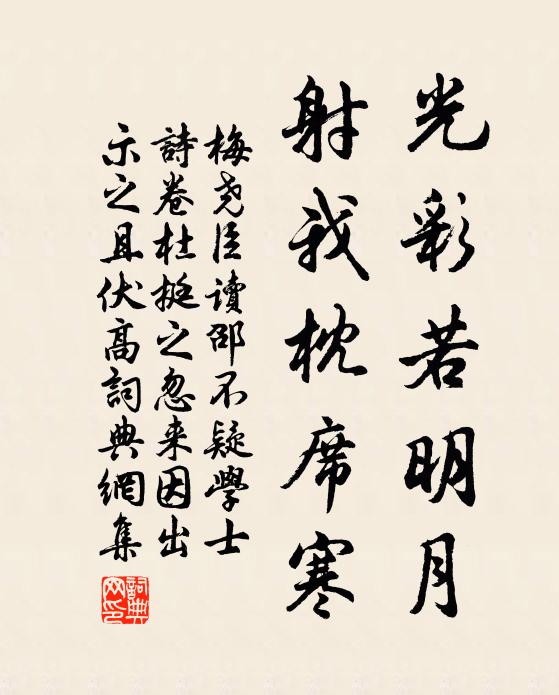 光彩若明月
射我枕席寒
梅堯臣讀邵不疑學士
詩卷杜挺之忽来因出
示之且伏高詞典網集
詞典网印